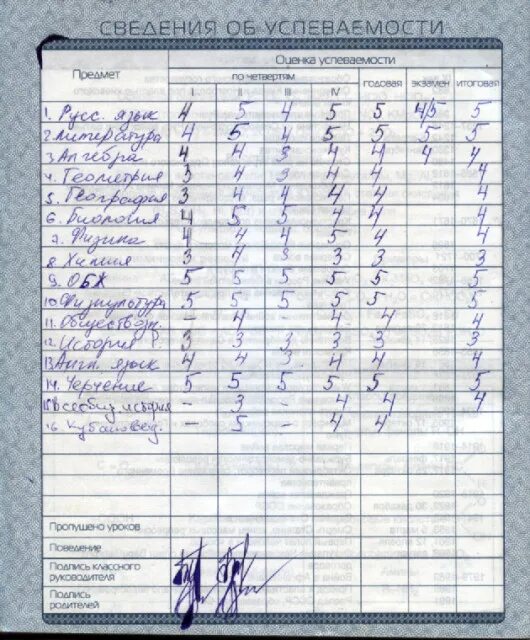 СВЕДЕНИЯ ОБ УСПЕВАЕМОСТИ
Предмет Оценка успеваемости
по четвертям годовая экзамен итоговая
I II III IV
1. Русс. язык 4 5 4 5 5 4/5 5
2. Литература 4 5 4 5 5 5 5
3. Алгебра 4 4 3 4 4 4 4
4. Геометрия 3 4 3 4 4 4
5. География 3 4 4 4 4 4
6. Биология 4 5 5 4 4 4
7. Физика 4 4 4 5 4 4
8. Химия 3 4 3 3 3 3
9. ОБЖ 5 5 5 5 5 5
10. Физкультура 5 5 5 5 5 5
11. Обществозн. - 4 - 4 4 4
12. История Р. 3 3 3 3 3 3
13. Англ. язык 4 4 3 4 4 4
14. Черчение 5 5 5 5 5 5
15. Всеобщ. история - 3 - 4 4 4
16. Кубановед. - 5 - 4 4
Пропущено уроков
Поведение
Подпись классного
руководителя
Подпись
родителей